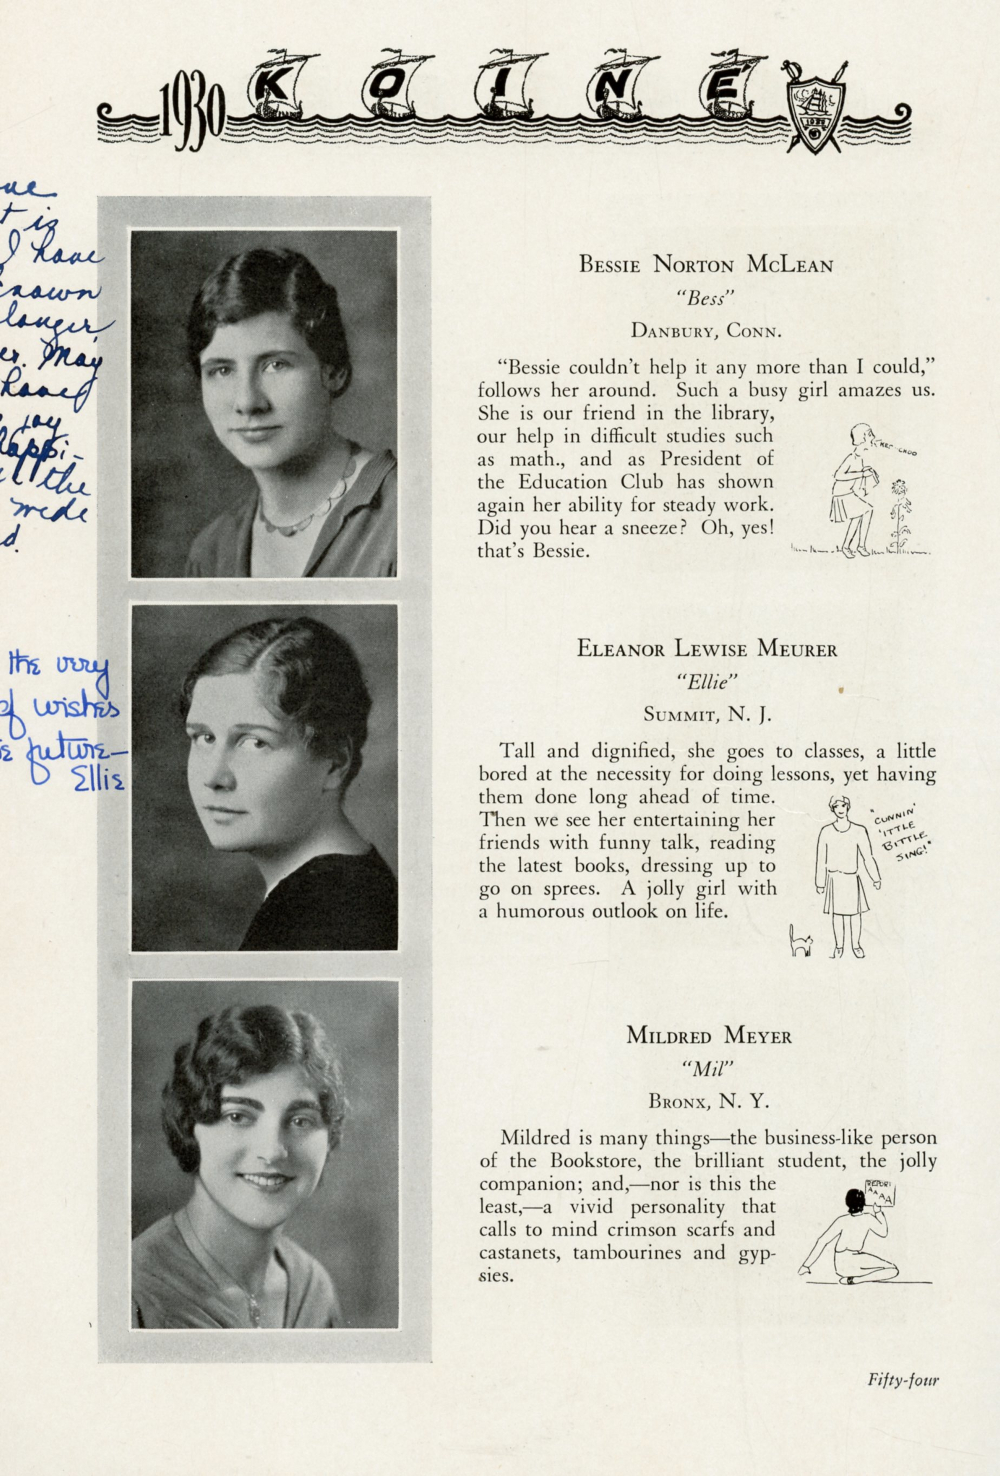 1930 KOINE
1930
ve
t is
I have
known
longer,
er. May
have
joy
happi-
the
wide
d.
BESSIE NORTON MCLEAN
"Bess"
DANBURY, CONN.
"Bessie couldn't help it any more than I could,"
follows her around. Such a busy girl amazes us.
She is our friend in the library,
our help in difficult studies such
as math., and as President of
the Education Club has shown
again her ability for steady work.
Did you hear a sneeze? Oh, yes!
that's Bessie.
KER-CHOO
the very
of wishes
e future—
Ellie
ELEANOR LEWISE MEURER
"Ellie"
SUMMIT, N. J.
Tall and dignified, she goes to classes, a little
bored at the necessity for doing lessons, yet having
them done long ahead of time.
Then we see her entertaining her
friends with funny talk, reading
the latest books, dressing up to
go on sprees. A jolly girl with
a humorous outlook on life.
"CUNNIN'
'ITTLE
BITTLE
SING!"
MILDRED MEYER
"Mil"
BRONX, N. Y.
Mildred is many things—the business-like person
of the Bookstore, the brilliant student, the jolly
companion; and,—nor is this the
least,—a vivid personality that
calls to mind crimson scarfs and
castanets, tambourines and gyp-
sies.
REPORT
A A A A
Fifty-four